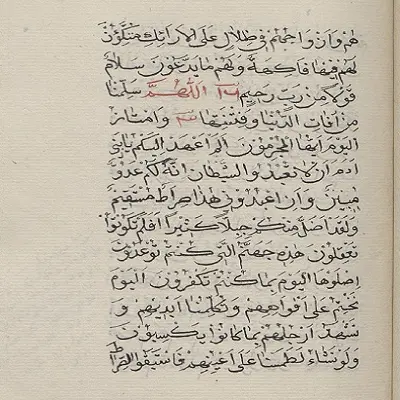 هم وازواجهم في ظلال على الارائك متكئون
لهم فيها فاكهة ولهم ما يدعون سلام
قولا من رب رحيم اللهم سلمنا
من آفات الدنيا وفتنتها وامتازوا
اليوم ايها المجرمون الم اعهد اليكم يا بني
ادم ان لا تعبدوا الشيطان انه لكم عدو
مبين وان اعبدوني هذا صراط مستقيم
ولقد اضل منكم جبلا كثيرا افلم تكونوا
تعقلون هذه جهنم التي كنتم توعدون
اصلوها اليوم بما كنتم تكفرون اليوم
نختم على افواههم وتكلمنا ايديهم و
تشهد ارجلهم بما كانوا يكسبون
ولو نشاء لطمسنا على اعينهم فاستبقوا الصراط